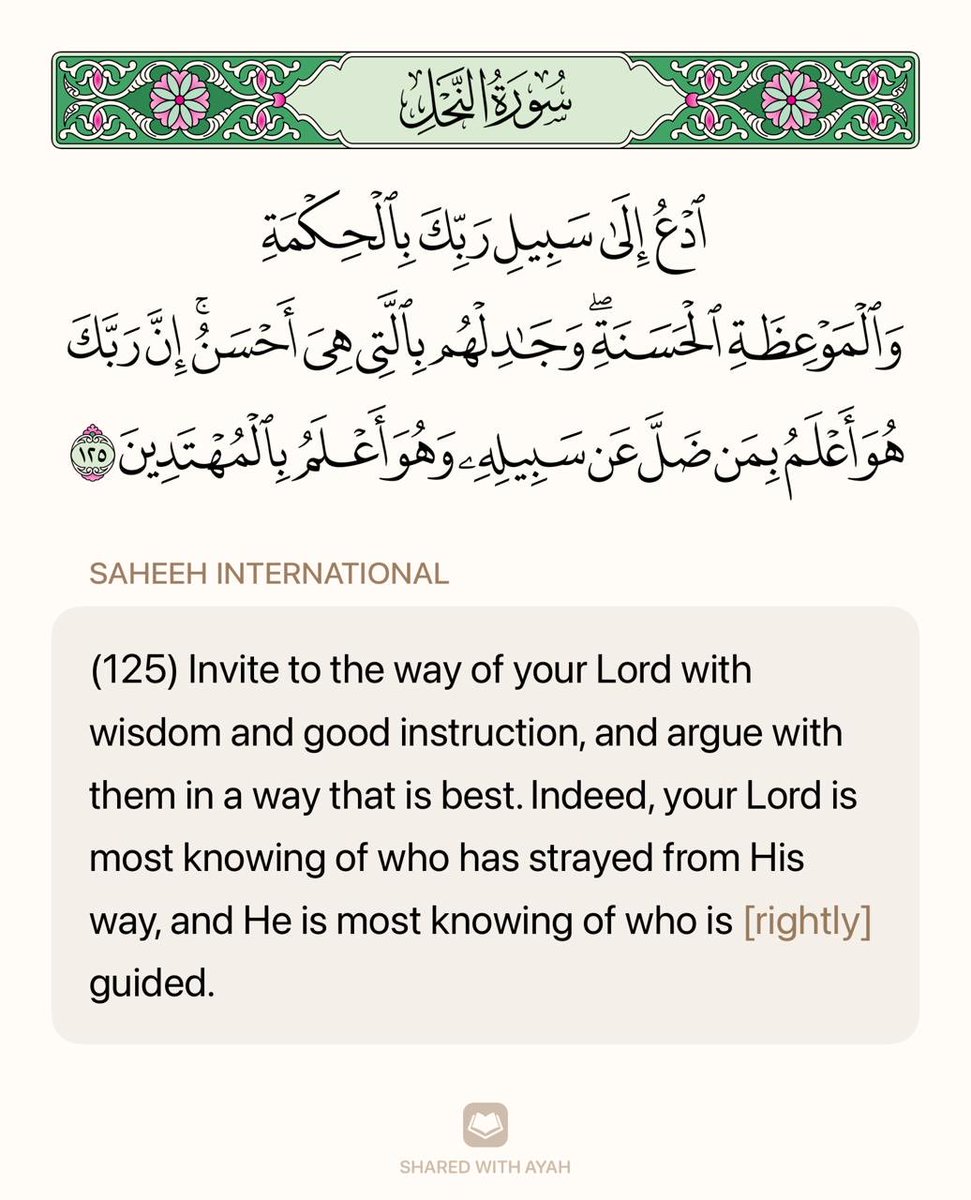 سُورَةُ النَّحْلِ
ٱدْعُ إِلَىٰ سَبِيلِ رَبِّكَ بِٱلْحِكْمَةِ
وَٱلْمَوْعِظَةِ ٱلْحَسَنَةِ ۖ وَجَـٰدِلْهُم بِٱلَّتِى هِىَ أَحْسَنُ ۚ إِنَّ رَبَّكَ
هُوَ أَعْلَمُ بِمَن ضَلَّ عَن سَبِيلِهِۦ وَهُوَ أَعْلَمُ بِٱلْمُهْتَدِينَ ١٢٥
SAHEEH INTERNATIONAL
(125) Invite to the way of your Lord with
wisdom and good instruction, and argue with
them in a way that is best. Indeed, your Lord is
most knowing of who has strayed from His
way, and He is most knowing of who is [rightly]
guided.
SHARED WITH AYAH